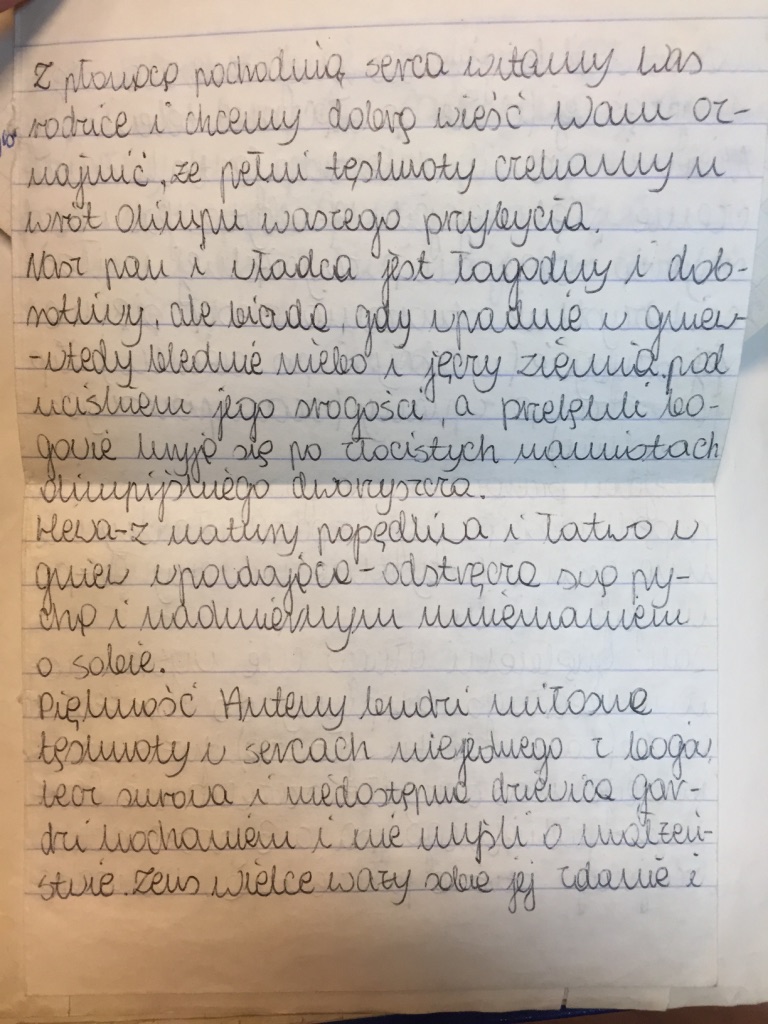 Z płonącą pochodnią serca witamy Was
rodzice i chcemy dobrą wieść Wam oz-
najmić, że pełni tęsknoty czekamy u
wrót Olimpu waszego przybycia.
Nasz pan i władca jest łagodny i dob-
rotliwy, ale biada, gdy wpadnie w gniew-
-wtedy blednie niebo i jęczy ziemia pod
uciskiem jego srogości, a przelękli bo-
gowie kryją się po złocistych namiotach
olimpijskiego dworzyszcza.
Hera-z natury popędliwa i łatwo w
gniew wpadająca-odstręcza swą py-
chą i nadmiernym mniemaniem
o sobie.
Piękność Ateny budzi miłosne
tęsknoty w sercach niejednego z boga,
lecz surowa i niedostępna dziewica gar-
dzi kochaniem i nie myśli o małżeń-
stwie. Zeus wielce waży sobie jej zdanie i